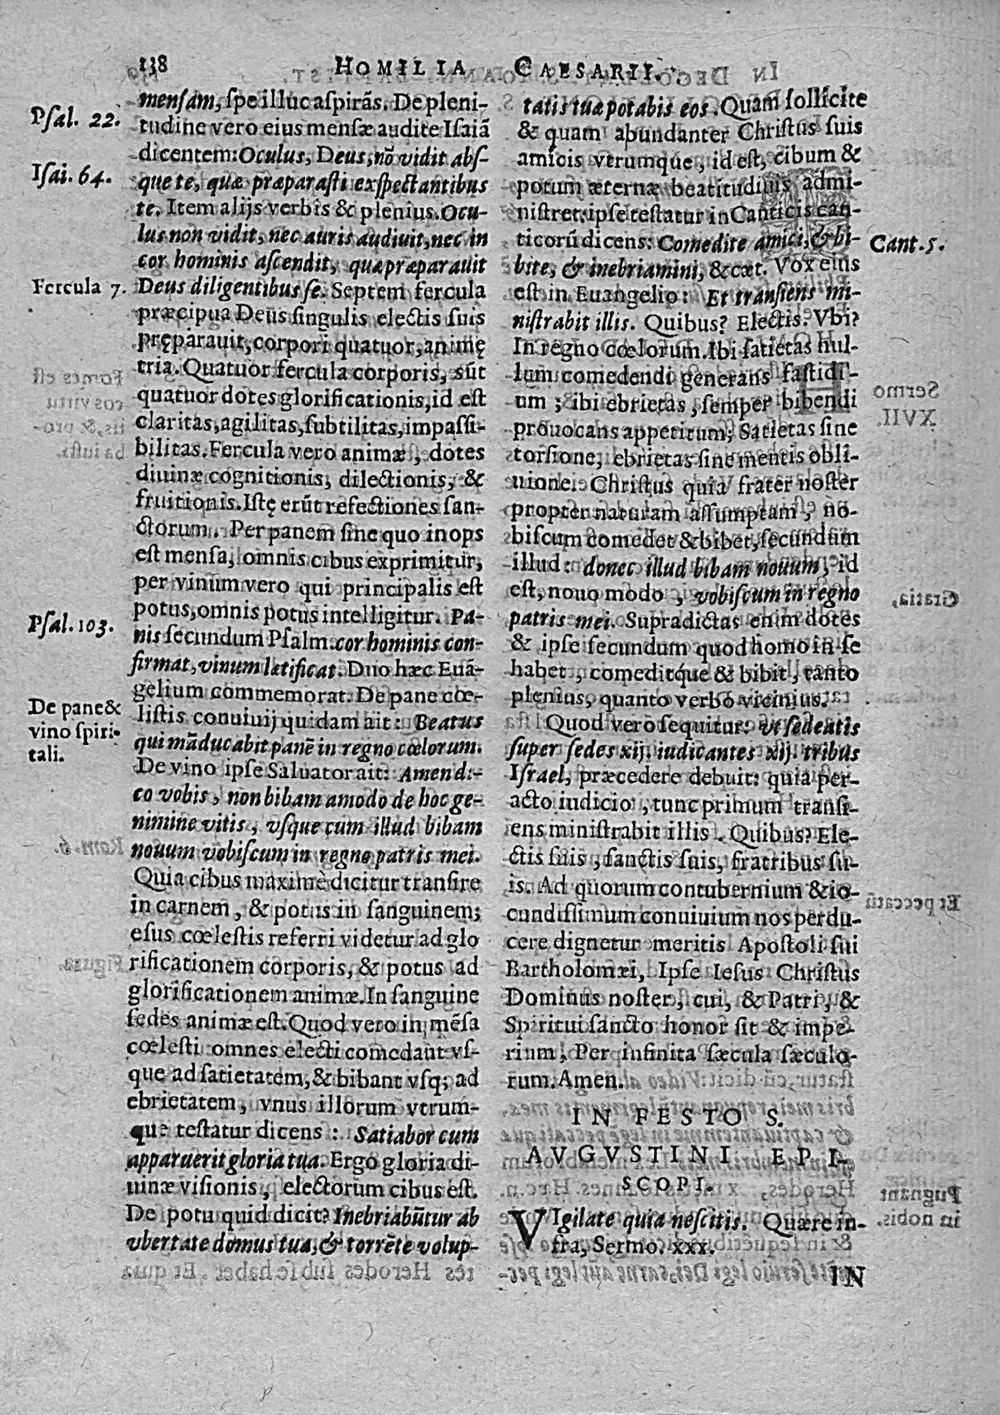 138 HOMILIA CAESARII.
Psal. 22.
Isai. 64.
Fercula 7.
Psal. 103.
De pane &
vino spiri-
tali.
mensam, spe illuc aspirãs. De pleni-
tudine vero eius mensæ audite Isaiã
dicentem: Oculus, Deus, nõ vidit abs-
que te, quæ præparasti exspectantibus
te. Item alijs verbis & plenius. Ocu-
lus non vidit, nec auris audiuit, nec in
cor hominis ascendit, quæ præparauit
Deus diligentibus se. Septem fercula
præcipua Deus singulis electis suis
pręparauit, corpori quatuor, animę
tria. Quatuor fercula corporis, sũt
quatuor dotes glorificationis, id est
claritas, agilitas, subtilitas, impassi-
bilitas. Fercula vero animæ, dotes
diuinæ cognitionis, dilectionis, &
fruitionis. Istę erũt refectiones san-
ctorum. Per panem sine quo inops
est mensa, omnis cibus exprimitur,
per vinum vero qui principalis est
potus, omnis potus intelligitur. Pa-
nis secundum Psalm. cor hominis con-
firmat, vinum lætificat. Duo hæc Euã-
gelium commemorat. De pane cœ-
listis conuiuij quidam ait: Beatus
qui mãducabit panẽ in regno cœlorum.
De vino ipse Saluator ait: Amen di-
co vobis, non bibam amodo de hoc ge-
nimine vitis, vsque cum illud bibam
nouum vobiscum in regno patris mei.
Quia cibus maximè dicitur transire
in carnem, & potus in sanguinem;
esus cœlestis referri videtur ad glo
rificationem corporis, & potus ad
glorificationem animæ. In sanguine
sedes animæ est. Quod vero in mẽsa
cœlesti omnes electi comedant vs-
que ad satietatem, & bibant vsq; ad
ebrietatem, vnus illorum vtrum-
que testatur dicens: Satiabor cum
apparuerit gloria tua. Ergo gloria di-
uinæ visionis, electorum cibus est.
De potu quid dicit? Inebriabũtur ab
vbertate domus tuæ, & torrẽte volup-
tatis tuæ potabis eos. Quam sollicite
& quam abundanter Christus suis
amicis vtrumque, id est, cibum &
potum æternæ beatitudinis admi-
nistret: ipse testatur in Canticis can-
ticorũ dicens: Comedite amici, & bi-
bite, & inebriamini, & cæt. Vox eius
est in Euangelio: Et transiens mi-
nistrabit illis. Quibus? Electis. Vbi?
In regno cœlorum. Ibi satietas nul-
lum comedendi generans fastidi-
um; ibi ebrietas, semper bibendi
prouocans appetitum; Satietas sine
torsione; ebrietas sine mentis obli-
uione. Christus quia frater noster
propter naturam assumptam, no-
biscum comedet & bibet, secundum
illud: donec illud bibam nouum, id
est, nouo modo, vobiscum in regno
patris mei. Supradictas enim dotes
& ipse secundum quod homo in se
habet, comeditq́ue & bibit, tanto
plenius, quanto verbo vicinius.
Quod vero sequitur: vt sedeatis
super sedes xij. iudicantes xij. tribus
Israel, præcedere debuit: quia per-
acto iudicio, tunc primum transi-
ens ministrabit illis. Quibus? Ele-
ctis suis, sanctis suis, fratribus su-
is. Ad quorum contubernium & io-
cundissimum conuiuium nos perdu-
cere dignetur meritis Apostoli sui
Bartholomæi, Ipse Iesus Christus
Dominus noster, cui, & Patri, &
Spiritui sancto honor sit & impe-
rium, Per infinita sæcula sæculo-
rum. Amen.
IN FESTO S.
AVGVSTINI EPI-
SCOPI.
VIgilate quia nescitis. Quære in-
fra, Sermo. xxx.
IN
Cant. 5.